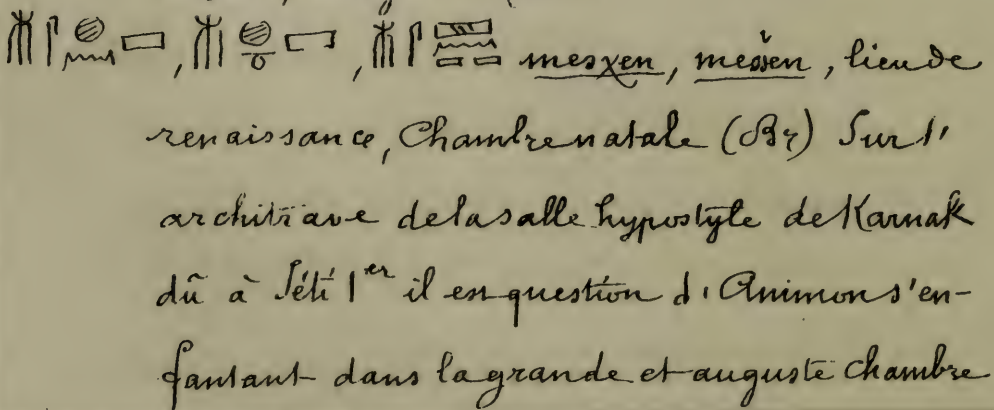 , , mesχen, mes̆en, lieu de
renaissance, Chambre natale (Br) Sur l'
architrave de la salle hypostyle de Karnak
dû à Séti 1er il en question d'Ammon s'en-
fantant dans la grande et auguste chambre